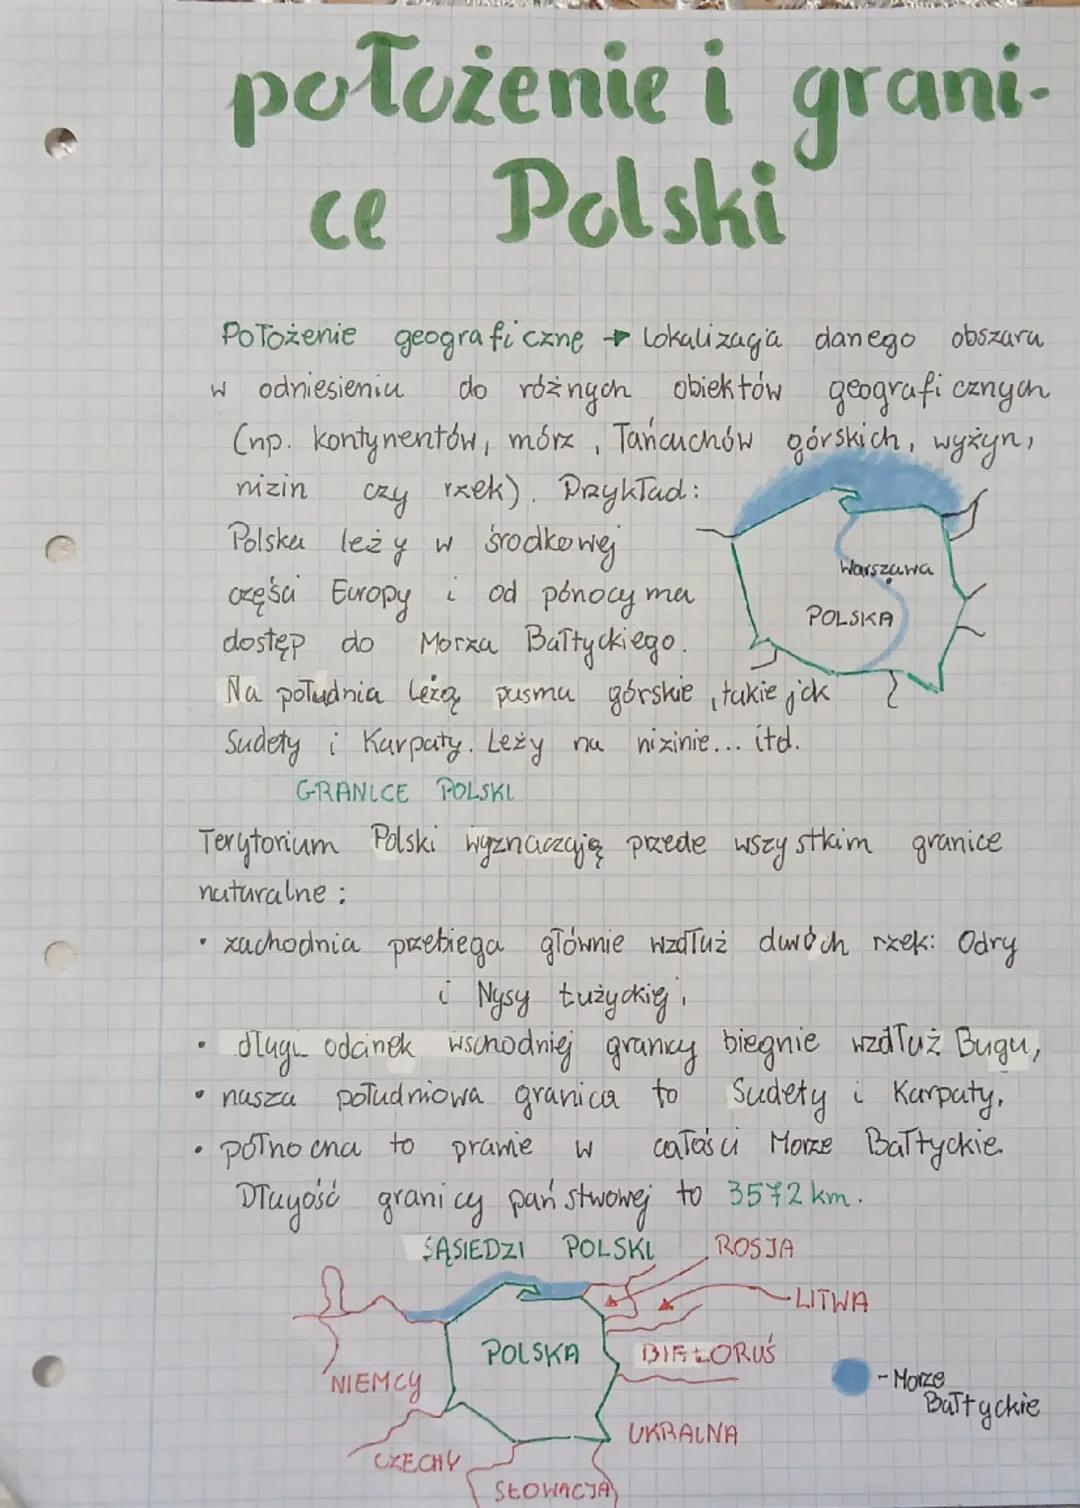 położenie i grani-
ce Polski
Położenie geograficzne → lokalizacja danego obszaru
w odniesieniu do różnych obiektów geograficznych
(np. kontynentów, mórz, łańcuchów górskich, wyżyn,
nizin czy rzek). Przykład:
Polska leży w środkowej
części Europy i od pónocy ma
dostęp do Morza Bałtyckiego.
Na południa leżą pasma górskie, takie jak
Sudety i Karpaty. Leży na nizinie... itd.
Warszawa
POLSKA
GRANICE POLSKI
Terytorium Polski wyznaczają przede wszystkim granice
naturalne:
• zachodnia przebiega głównie wzdłuż dwóch rzek: Odry
i Nysy Łużyckiej,
• długi odcinek wschodniej granicy biegnie wzdłuż Bugu,
• nasza południowa granica to Sudety i Karpaty,
• północna to prawie w całości Morze Bałtyckie.
Długość granicy państwowej to 3572 km.
SĄSIEDZI POLSKI
ROSJA
LITWA
POLSKA
BIAŁORUŚ
NIEMCY
- Morze
Bałtyckie
UKRAINA
CZECHY
SŁOWACJA